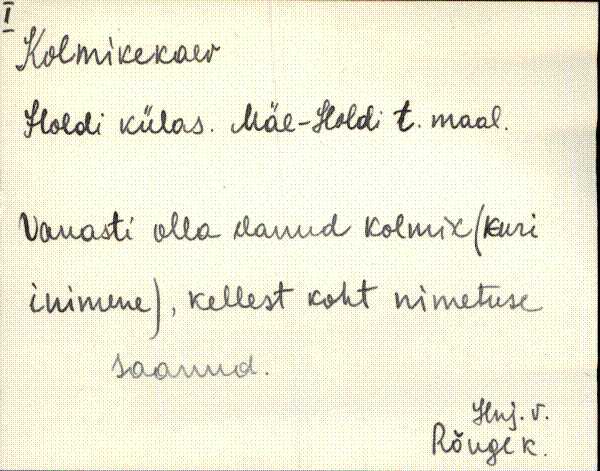 I
Kolmikekaev
Holdi külas. Mäe-Holdi t. maal.
Vanasti olla elanud kolmik (kuri
inimene), kellest koht nimetuse
saanud.
v.
Rõuge k.